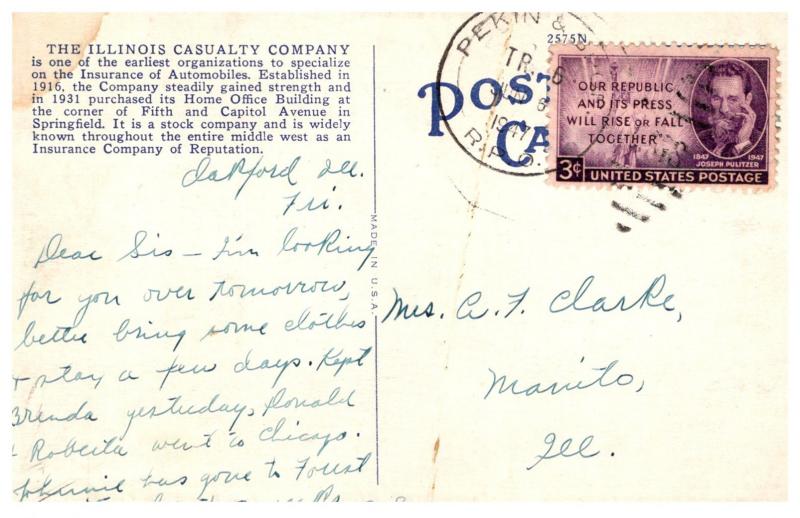 THE ILLINOIS CASUALTY COMPANY
is one of the earliest organizations to specialize
on the Insurance of Automobiles. Established in
1916, the Company steadily gained strength and
in 1931 purchased its Home Office Building at
the corner of Fifth and Capitol Avenue in
Springfield. It is a stock company and is widely
known throughout the entire middle west as an
Insurance Company of Reputation.
Oakford Ill.
Fri.
Dear Sis – I'm looking
for you over tomorrow,
better bring some clothes
+ stay a few days. Kept
Brenda yesterday, Ronald
+ Roberta went to Chicago.
Johnnie has gone to Forest
MADE IN U.S.A.
2575N
POST
CA
PEKIN &
TR. 6
JUN 6
1947
R.P.O.
OUR REPUBLIC
AND ITS PRESS
WILL RISE OR FALL
TOGETHER
1847 1947
JOSEPH PULITZER
3¢ UNITED STATES POSTAGE
Mrs. A. F. Clarke,
Manito,
Ill.